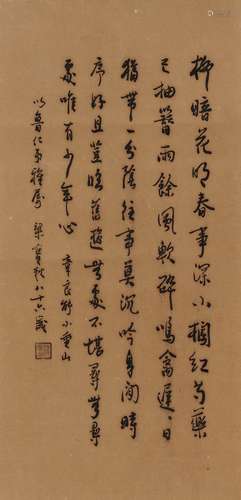 柳暗花明春事深小欄紅芍藥
已抽簪雨餘風軟碎鳴禽遲〻日
猶帶一分陰往事莫沉吟身閒時
序好且登臨舊遊無處不堪尋無尋
處唯有少年心 章良能小重山
以魯仁弟雅屬 梁實秋八十六歲